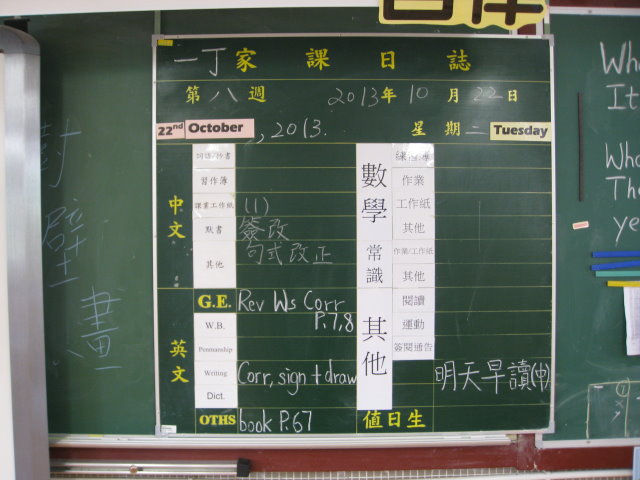 一丁家課日誌
第八週 2013年10月22日
22nd October, 2013. 星期二 Tuesday
中文
習作簿
課業工作紙 (1)
默書 簽改
其他 句式改正
英文
G.E. Rev Ws Corr
P.7,8
W.B.
Penmanship
Writing Corr, sign + draw
Dict.
OTHS book P.67
數學
作業
工作紙
其他
常識
作業/工作紙
其他
其他
閱讀
運動
簽閱通告
明天早讀(中)
值日生
對壁畫
Wha
It
Who
The
ye